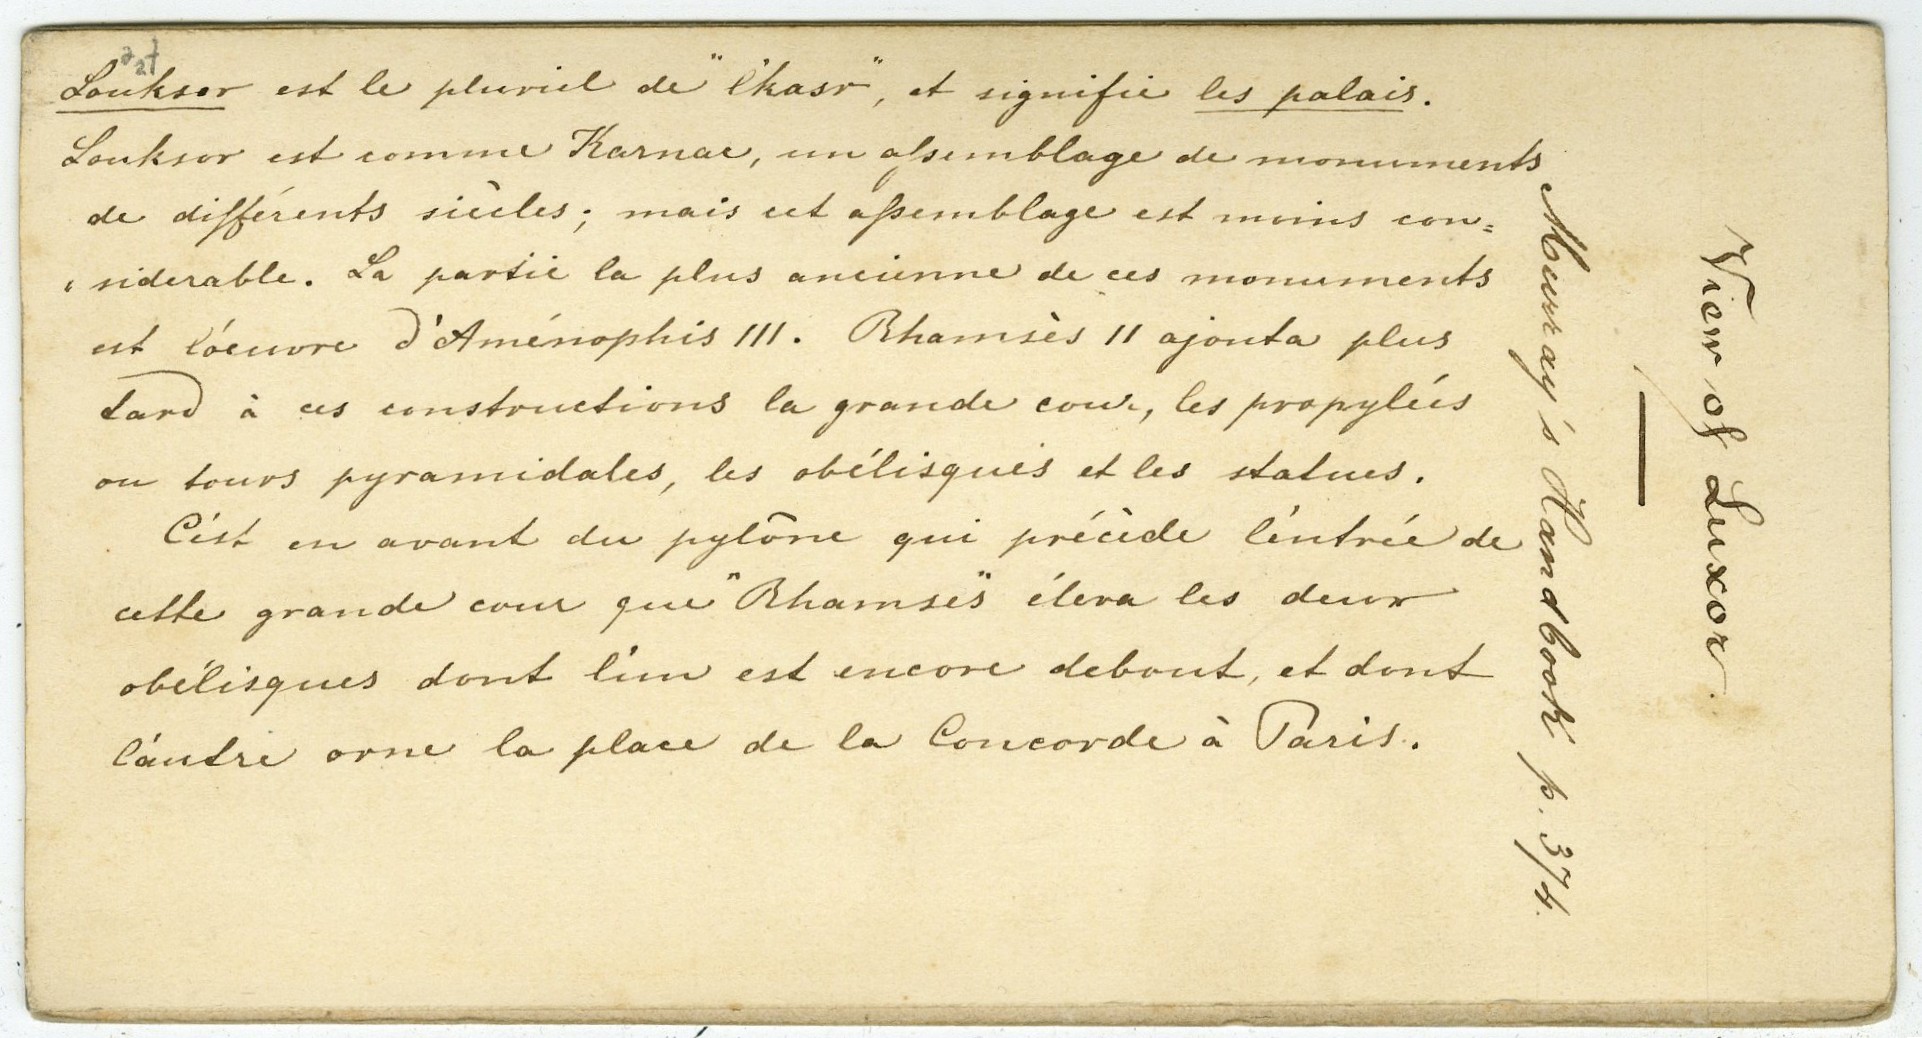 Louksor est le pluriel de "l'kasr", et signifie les palais.
Louksor est comme Karnac, un assemblage de monuments
de différents siècles; mais cet assemblage est moins con=
siderable. La partie la plus ancienne de ces monuments
est l'oeuvre d'Aménophis III. Rhamsès II ajouta plus
tard à ces constructions la grande cour, les propylées
ou tours pyramidales, les obélisques et les statues.
C'est en avant du pylône qui précède l'entrée de
cette grande cour que "Rhamses" éleva les deux
obélisques dont l'un est encore debout, et dont
l'autre orne la place de la Concorde à Paris.
Murray's Handbook p. 374.
View of Luxor.